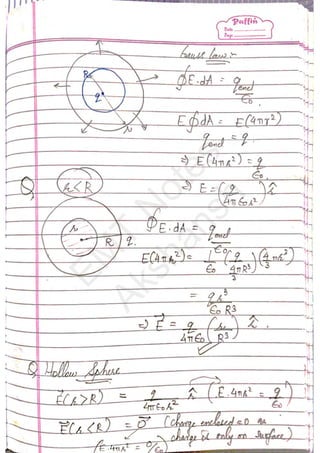 Puffin
Date
Page
Gauss law:-
R
q
r
∮E.dA = q_encl/ε₀
E∮dA = E(4πr²)
q_encl = q
⇒ E(4πr²) = q/ε₀
⇒ E = (q/4πε₀r²) r̂
Q, r<R
r
R
q.
∮E.dA = q_encl/ε₀
E(4πr²) = 1/ε₀ (q/(4/3 πR³)) (4/3 πr³)
= qr³/ε₀R³
⇒ E⃗ = q/4πε₀ (r/R³) r̂.
Q, Hollow Sphere
E⃗(r>R) = q/4πε₀r² r̂ (E.4πr² = q/ε₀)
E⃗(r<R) = 0⃗ (charge enclosed = 0 as
charge is only on surface)
(E.4πr² = 0/ε₀)